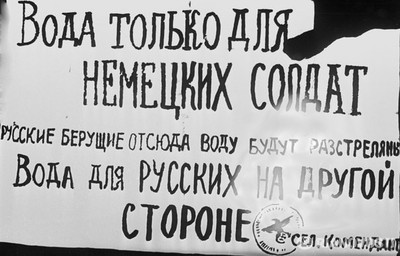 Вода только для
немецких солдат
русские берущие отсюда воду будут расстреляны
Вода для русских на другой
стороне
сел. комендант